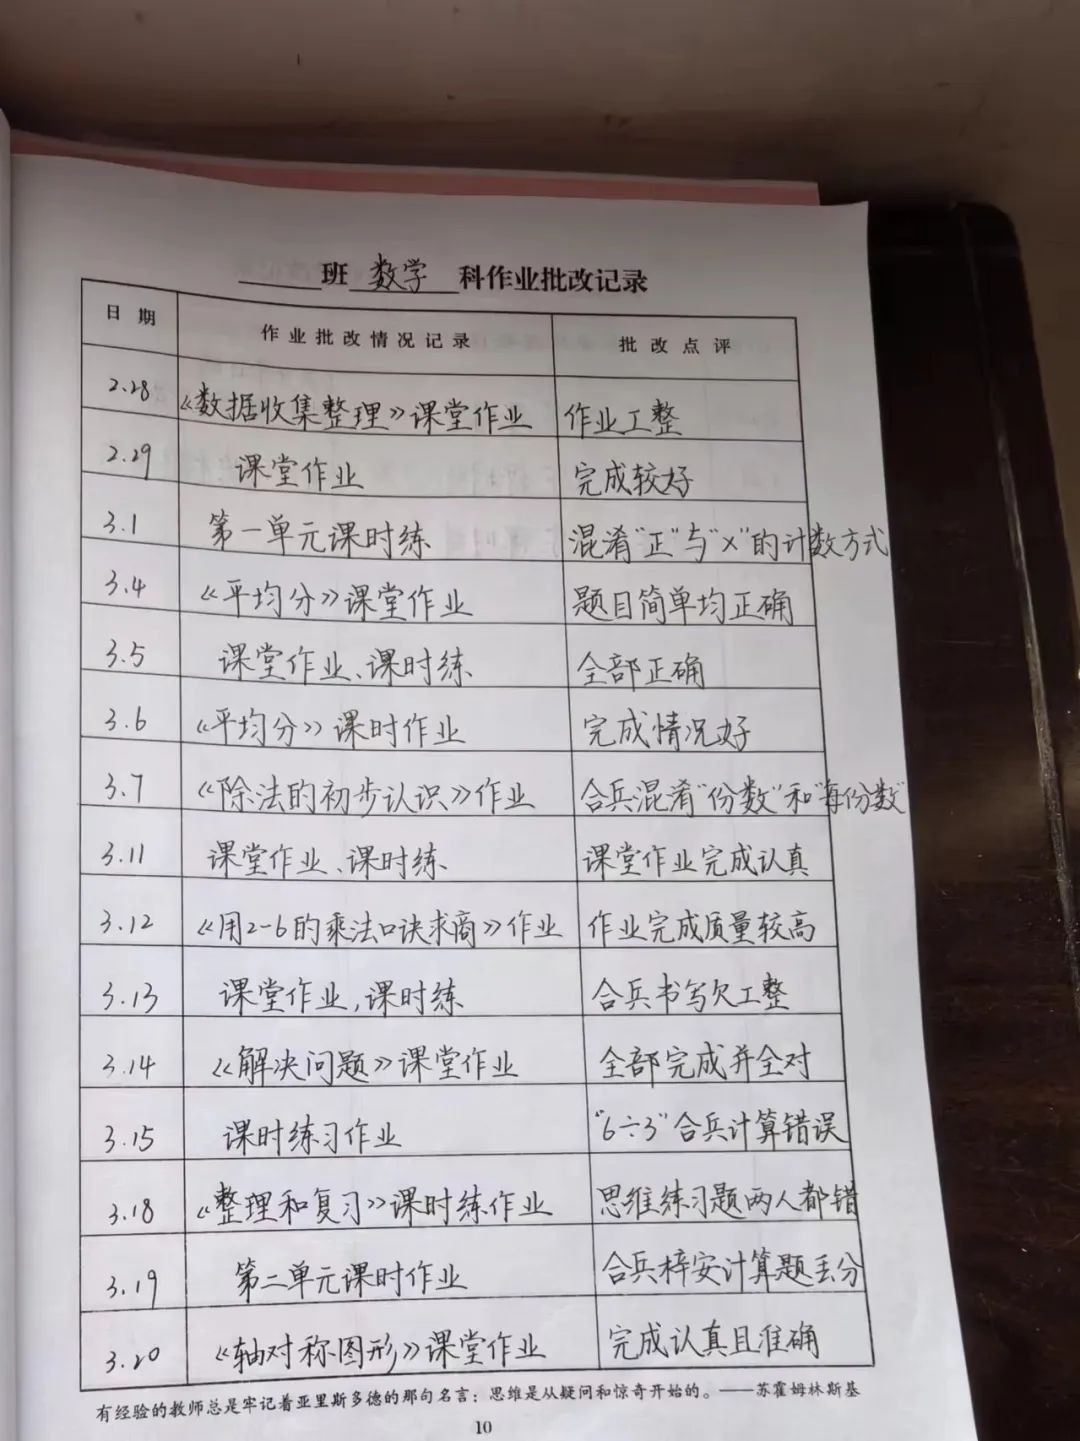 班 数学 科作业批改记录
日期 作业批改情况记录 批改点评
2.28 《数据收集整理》课堂作业 作业工整
2.29 课堂作业 完成较好
3.1 第一单元课时练 混淆“正”与“×”的计数方式
3.4 《平均分》课堂作业 题目简单均正确
3.5 课堂作业、课时练 全部正确
3.6 《平均分》课时作业 完成情况好
3.7 《除法的初步认识》作业 合兵混淆“份数”和“每份数”
3.11 课堂作业、课时练 课堂作业完成认真
3.12 《用2-6的乘法口诀求商》作业 作业完成质量较高
3.13 课堂作业,课时练 合兵书写欠工整
3.14 《解决问题》课堂作业 全部完成并全对
3.15 课时练习作业 “6÷3”合兵计算错误
3.18 《整理和复习》课时练作业 思维练习题两人都错
3.19 第二单元课时作业 合兵梓安计算题丢分
3.20 《轴对称图形》课堂作业 完成认真且准确
有经验的教师总是牢记着亚里斯多德的那句名言：思维是从疑问和惊奇开始的。——苏霍姆林斯基
10